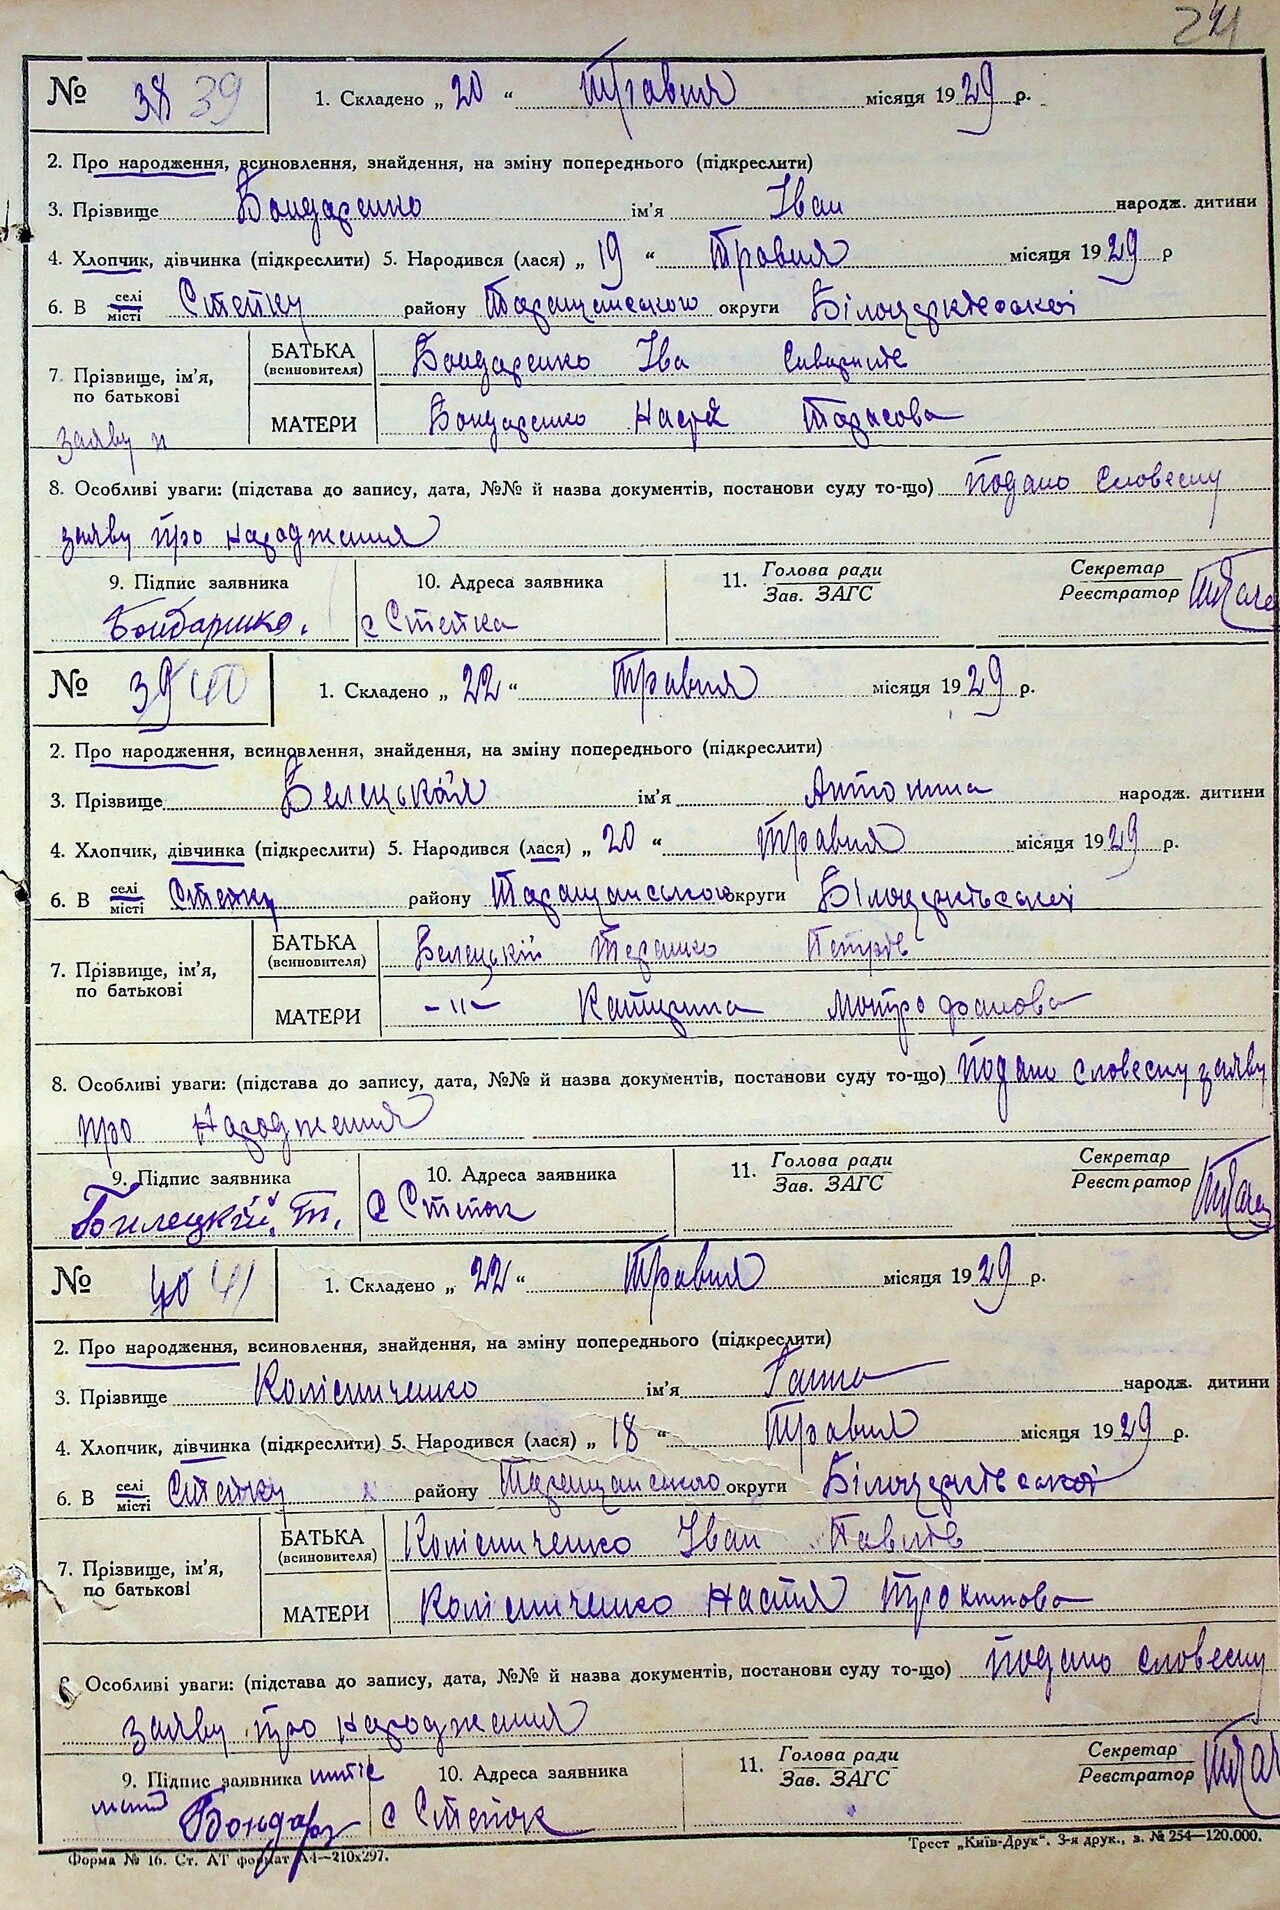 24
№ 38 39 1. Складено „ 20 “ Травня місяця 1929 р.
2. Про народження, всиновлення, знайдення, на зміну попереднього (підкреслити)
3. Прізвище Бондаренко ім’я Іван народж. дитини
4. Хлопчик, дівчинка (підкреслити) 5. Народився (лася) „ 19 “ Травня місяця 1929 р
6. В селі місті Степку району Таращанського округи Білоцерківської
7. Прізвище, ім’я, по батькові
БАТЬКА (всиновителя) Бондаренко Іва
МАТЕРИ Бондаренко Настя Тарасова
заяву п
8. Особливі уваги: (підстава до запису, дата, №№ й назва документів, постанови суду то-що) Подано словесну
заяву про народження
9. Підпис заявника 10. Адреса заявника 11. Голова ради Зав. ЗАГС Секретар Реєстратор
с Степка
№ 39 40 1. Складено „ 22 “ Травня місяця 1929 р.
2. Про народження, всиновлення, знайдення, на зміну попереднього (підкреслити)
3. Прізвище Белецькая ім’я Антонина народж. дитини
4. Хлопчик, дівчинка (підкреслити) 5. Народився (лася) „ 20 “ Травня місяця 1929 р.
6. В селі місті Степку району Таращанського округи Білоцерківської
7. Прізвище, ім’я, по батькові
БАТЬКА (всиновителя) Белецькій Терешко Петрів
МАТЕРИ -"- Катерина Мотрофанова
8. Особливі уваги: (підстава до запису, дата, №№ й назва документів, постанови суду то-що) Подано словесну заяву
про народження
9. Підпис заявника 10. Адреса заявника 11. Голова ради Зав. ЗАГС Секретар Реєстратор
Билецкій. Т. с Степок
№ 40 41 1. Складено „ 22 “ Травня місяця 1929 р.
2. Про народження, всиновлення, знайдення, на зміну попереднього (підкреслити)
3. Прізвище Колісниченко ім’я Ганна народж. дитини
4. Хлопчик, дівчинка (підкреслити) 5. Народився (лася) „ 18 “ Травня місяця 1929 р.
6. В селі місті Степку району Таращанського округи Білоцерківської
7. Прізвище, ім’я, по батькові
БАТЬКА (всиновителя) Колісниченко Іван Павлів
МАТЕРИ Колісниченко Настя Трохимова
8. Особливі уваги: (підстава до запису, дата, №№ й назва документів, постанови суду то-що) Подано словесну
заяву про народження
9. Підпис заявника 10. Адреса заявника 11. Голова ради Зав. ЗАГС Секретар Реєстратор
Бондар с Степок
Форма № 16. Ст. АТ формат А4—210х297.
Трест „Київ-Друк“. 3-я друк., з. № 254—120.000.